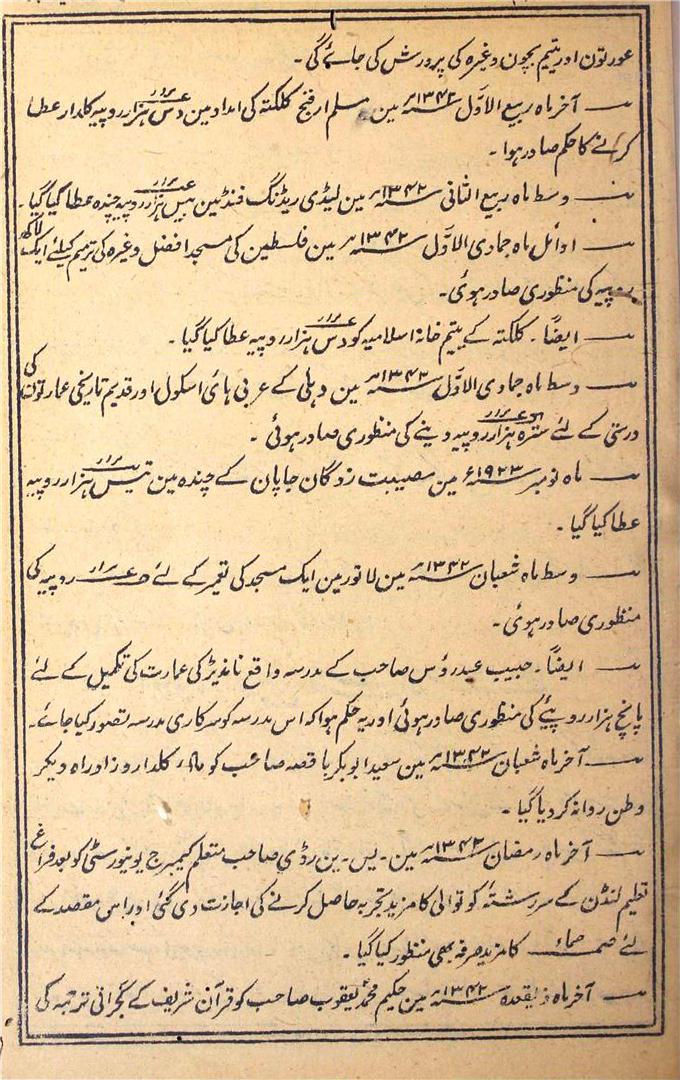 عورتون اور یتیم بچون وغیرہ کی پرورش کی جائے گی۔
آخر ماہ ربیع الاوّل ۱۳۴۲؁ھ مین مسلم ارفنج کلکتہ کی امداد مین دس ہزار روپیہ کلدار عطا
کرانے کا حکم صادر ہوا۔
وسط ماہ ربیع الثانی ۱۳۴۲؁ھ مین لیڈی ریڈنگ فنڈ مین بیس ہزار روپیہ چندہ عطا کیا گیا۔
اوائل ماہ جمادی الاوّل ۱۳۴۲؁ھ مین فلسطین کی مسجد افضل وغیرہ کی ترمیم کیلئے ایک لاکھ
روپیہ کی منظوری صادر ہوئی۔
ایضاً۔ کلکتہ کے یتیم خانۂ اسلامیہ کو دس ہزار روپیہ عطا کیا گیا۔
وسط ماہ جمادی الاوّل ۱۳۴۲؁ھ مین دہلی کے عربی ہائی اسکول اور قدیم تاریخی عمارتون کی
درستی کے لئے سترہ ہزار روپیہ دینے کی منظوری صادر ہوئی۔
ماہ نومبر ۱۹۲۳؁ء مین مصیبت زدگان جاپان کے چندہ مین تیس ہزار روپیہ
عطا کیا گیا۔
وسط ماہ شعبان ۱۳۴۲؁ھ مین لاتور مین ایک مسجد کی تعمیر کے لئے روپیہ کی
منظوری صادر ہوئی۔
ایضاً۔ حبیب عیدروس صاحب کے مدرسہ واقع ناندیڑ کی عمارت کی تکمیل کے لئے
پانچ ہزار روپئے کی منظوری صادر ہوئی اور یہ حکم ہوا کہ اس مدرسہ کو سرکاری مدرسہ تصور کیا جائے۔
آخر ماہ شعبان ۱۳۴۲؁ھ مین سعید ابوبکر باقصہ صاحب کو کلدار و زاد راہ دیکر
وطن روانہ کر دیا گیا۔
آخر ماہ رمضان ۱۳۴۲؁ھ مین۔ یس۔ ین رڈی صاحب متعلم کیمبرج یونیورسٹی کو بعد فراغ
تعلیم لنڈن کے سررشتۂ کوتوالی کا مزید تجربہ حاصل کرنے کی اجازت دی گئی اور اس مقصد کے
لئے کا مزید صرفہ بھی منظور کیا گیا۔
آخر ماہ ذیقعدہ ۱۳۴۲؁ھ مین حکیم محمد یعقوب صاحب کو قرآن شریف کے گجراتی ترجمہ کی